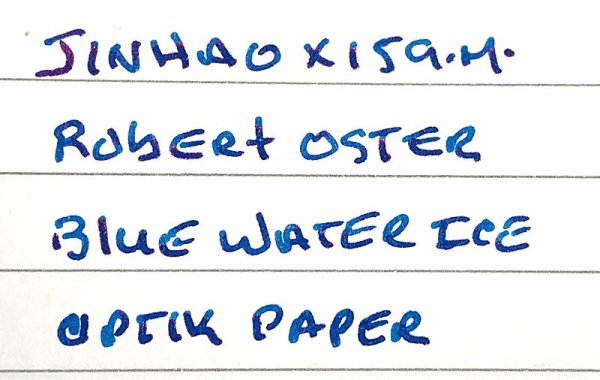 JINHAO X159.M.
ROBERT OSTER
BLUE WATER ICE
OPTIK PAPER